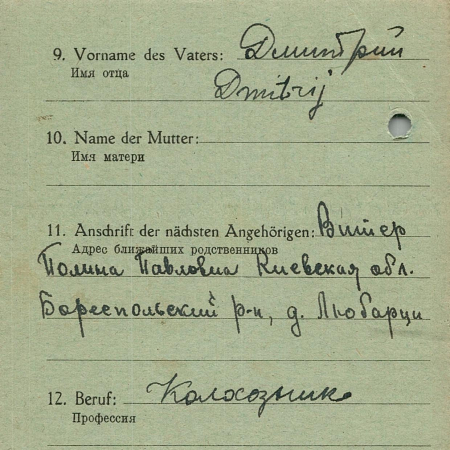 9. Vorname des Vaters: Дмитрий
Имя отца
Dmitrij
10. Name der Mutter:
Имя матери
11. Anschrift der nächsten Angehörigen: Витер
Адрес ближайших родственников
Полина Павловна Киевская обл.
Бореспольский р-н, д. Любарци
12. Beruf: Колхозник
Профессия